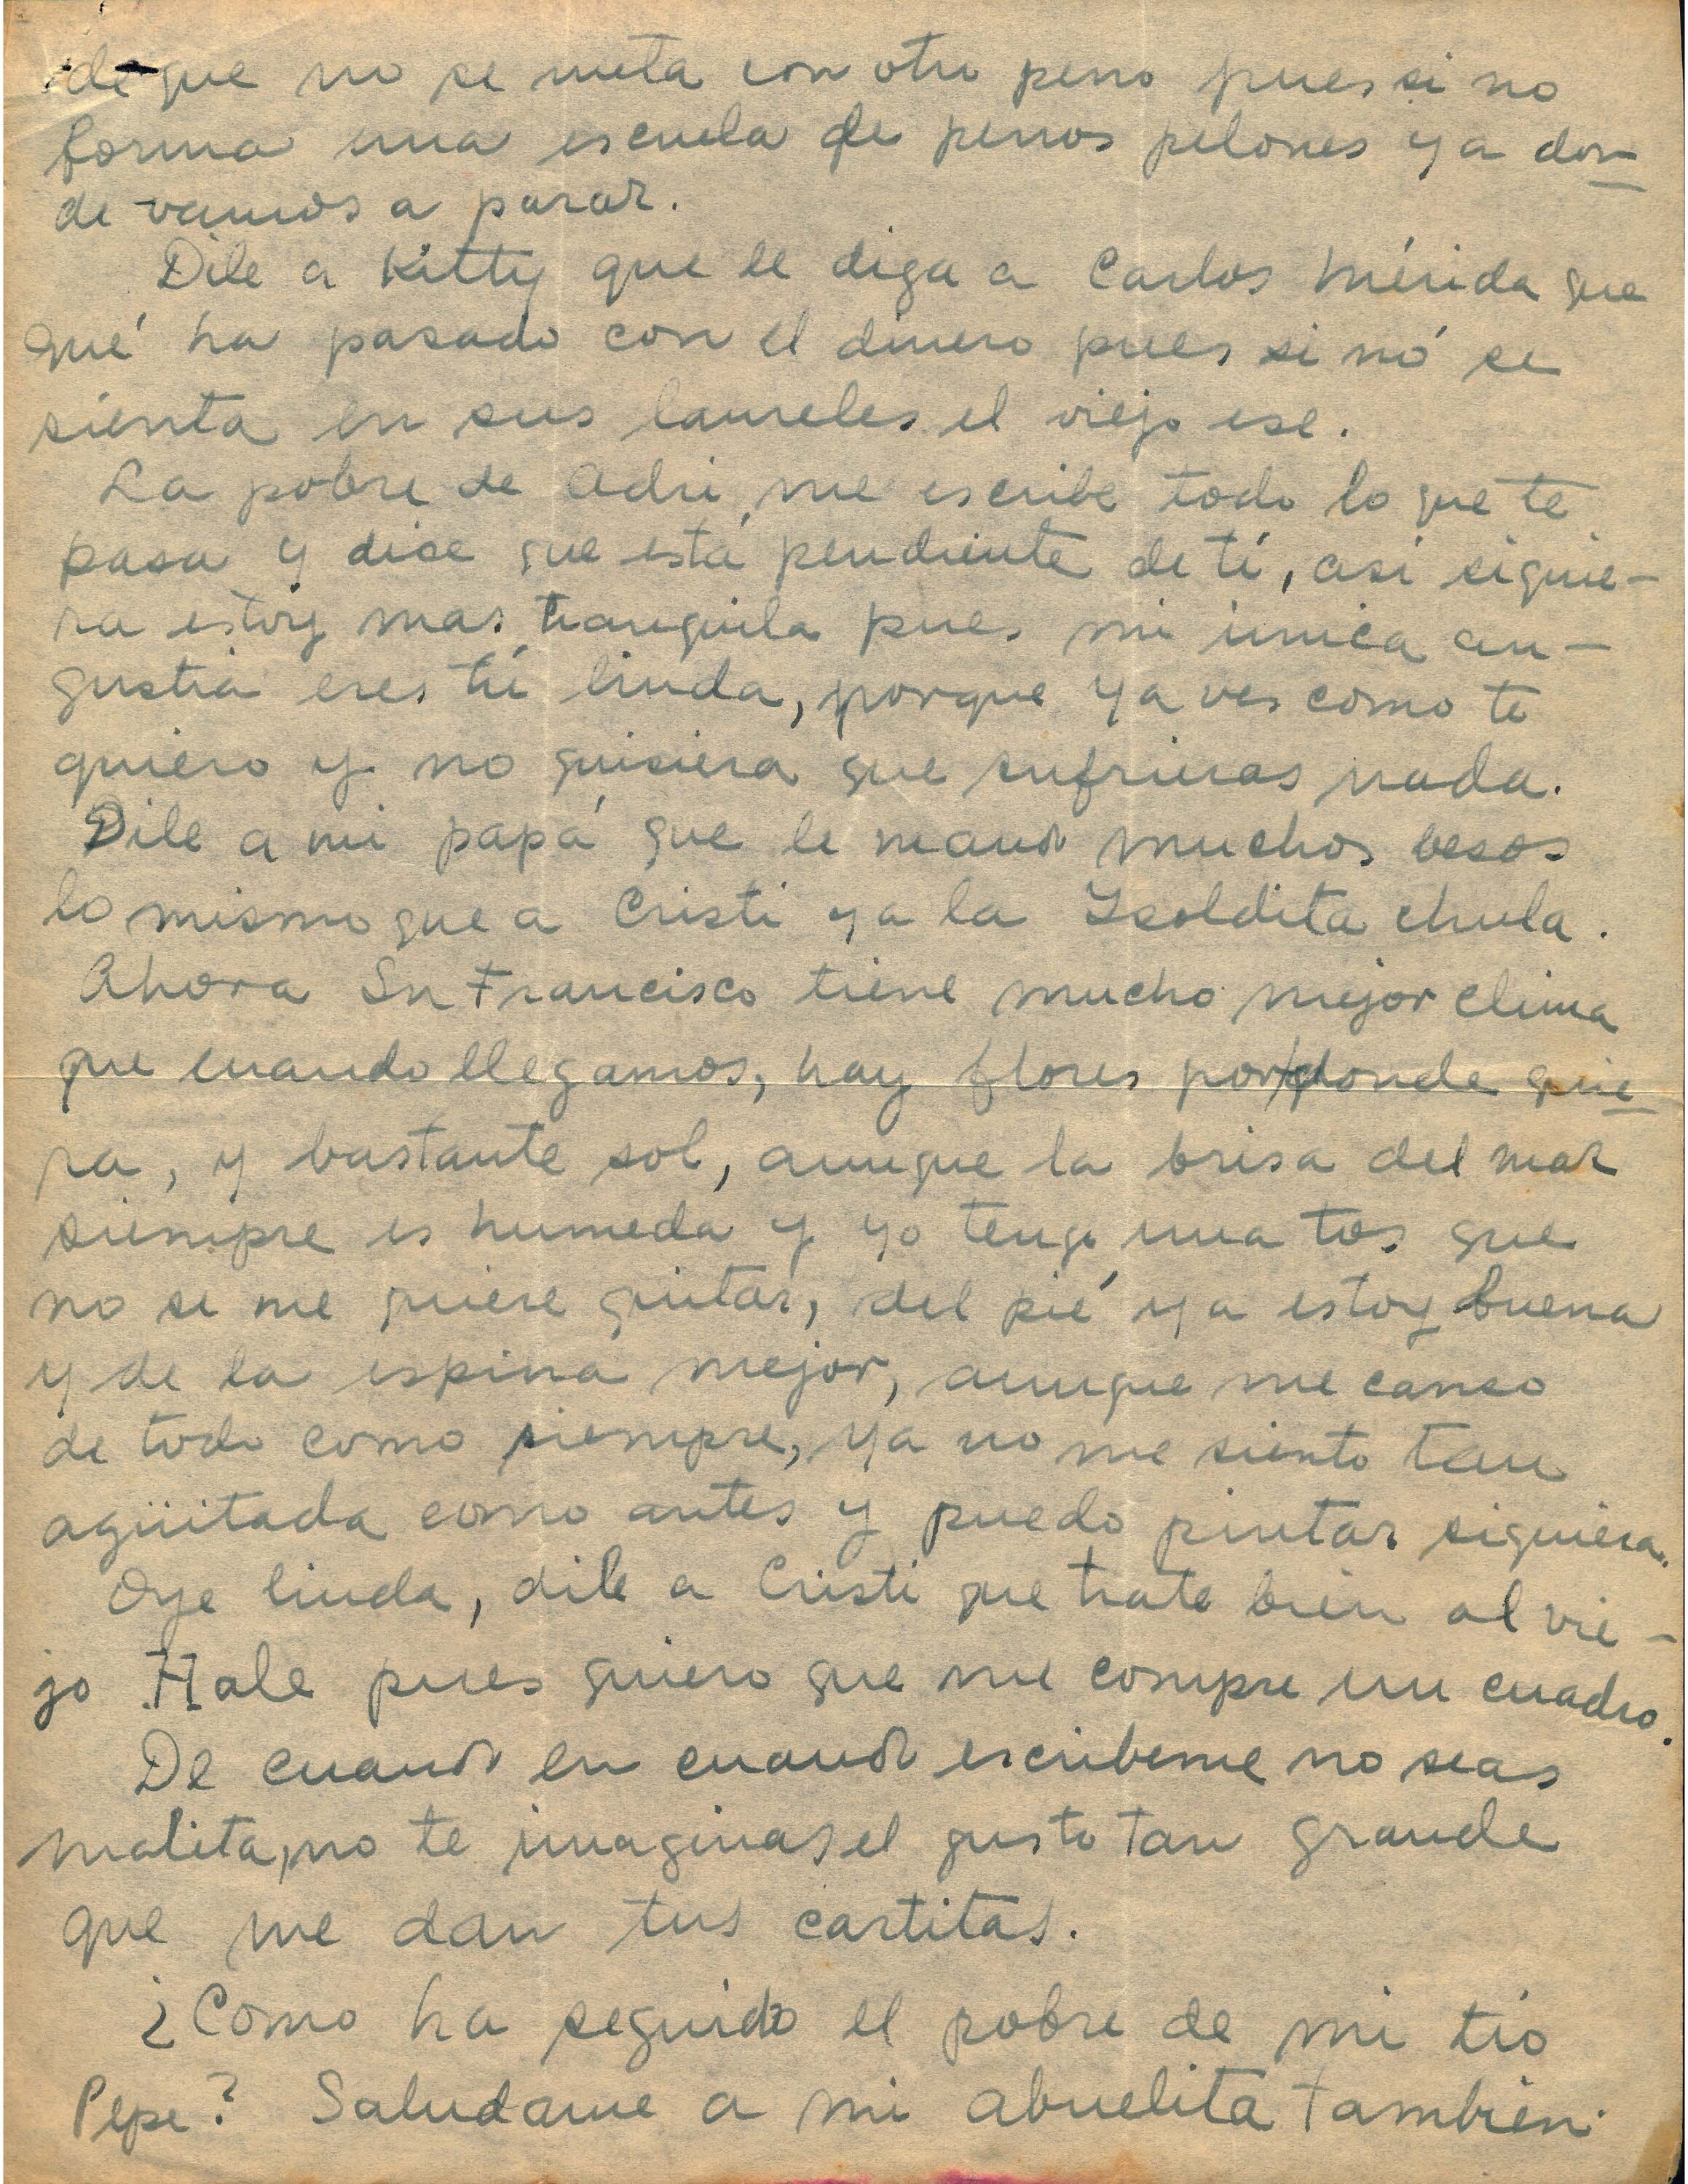 de que no se meta con otro perro pues si no
forma una escuela de perros pelones y a don-
de vamos a parar.
Dile a Kitty que le diga a Carlos Mérida que
qué ha pasado con el dinero pues si nó se
sienta en sus laureles el viejo ese.
La pobre de Adri me escribe todo lo que te
pasa y dice que está pendiente de tí, asi siquie-
ra estoy mas tranquila pues mi única an-
gustia eres tú linda, porque ya ves como te
quiero y no quisiera que sufrieras nada.
Dile a mi papá que le mando muchos besos
lo mismo que a Cristi y a la Isoldita chula.
Ahora Sn Francisco tiene mucho mejor clima
que cuando llegamos, hay flores por donde quie-
ra, y bastante sol, aunque la brisa del mar
siempre es humeda y yo tengo una tos que
no se me quiere quitar, del pié ya estoy buena
y de la espina mejor, aunque me canso
de todo como siempre, ya no me siento tan
agüitada como antes y puedo pintar siquiera.
Oye linda, dile a Cristi que trate bien al vie-
jo Hale pues quiero que me compre un cuadro.
De cuando en cuando escribeme no seas
malita, no te imaginas el gusto tan grande
que me dan tus cartitas.
¿Como ha seguido el pobre de mi tío
Pepe? Saludame a mi abuelita tambien.